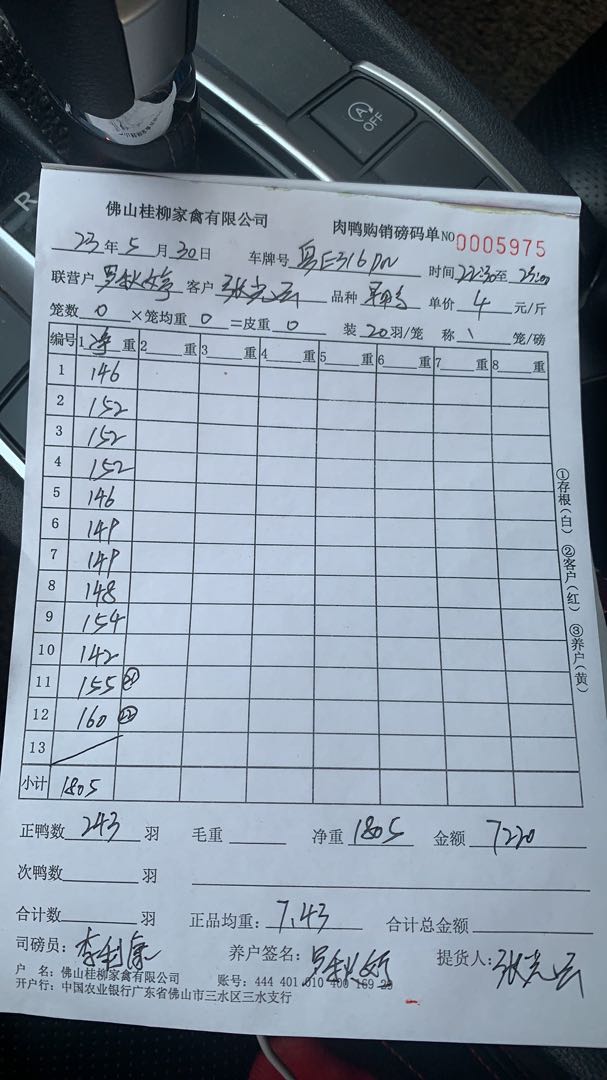 OFF
A
R
佛山桂柳家禽有限公司 肉鸭购销磅码单 NO 0005975
23年5月30日 车牌号 粤E316DN 时间 22:30至23:00
联营户 客户 张光云 品种 单价 4 元/斤
笼数 0 ×笼均重 0 =皮重 0 装 20 羽/笼 称 1 笼/磅
编号 1 净重 2 重 3 重 4 重 5 重 6 重 7 重 8 重
1 146
2 152
3 152
4 152
5 146
6 149
7 149
8 148
9 154
10 142
11 155 ㉑
12 160 ㉒
13
小计 1805
①存根(白) ②客户(红) ③养户(黄)
正鸭数 243 羽 毛重 净重 1805 金额 7220
次鸭数 羽
合计数 羽 正品均重: 7.43 合计总金额
司磅员: 李利康 养户签名: 提货人: 张光云
户 名: 佛山桂柳家禽有限公司 账号: 444 401 010 400 169 29
开户行: 中国农业银行广东省佛山市三水区三水支行